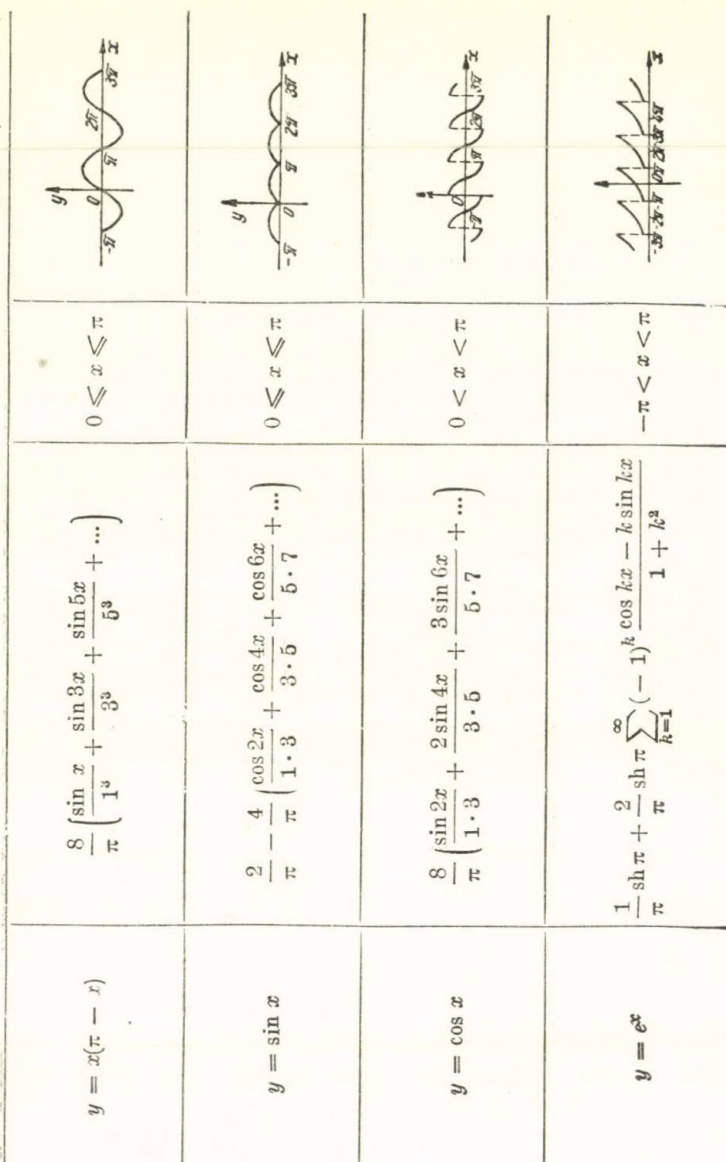 y = x(π − x)
8/π (sin x/1³ + sin 3x/3³ + sin 5x/5³ + ...)
0 ⩽ x ⩽ π
y
x
-π 0 π 2π 3π
y = sin x
2/π − 4/π (cos 2x/1·3 + cos 4x/3·5 + cos 6x/5·7 + ...)
0 ⩽ x ⩽ π
y
x
-π 0 π 2π 3π
y = cos x
8/π (sin 2x/1·3 + 2 sin 4x/3·5 + 3 sin 6x/5·7 + ...)
0 < x < π
x
-π 0 π 2π 3π
y = eˣ
1/π sh π + 2/π sh π ∑_{k=1}^{∞} (− 1)ᵏ (cos kx − k sin kx)/(1 + k²)
−π < x < π
x
-3π -2π -π 0 π 2π 3π 4π